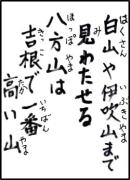 はくさん いぶきやま
白山や伊吹山まで
見わたせる
はっぽ やま
八方山は
きっこ いちばん
吉根で一番
たか やま
高い山